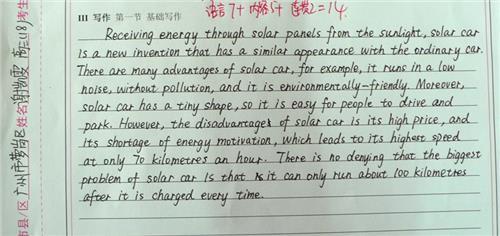 语言7+内容5+连贯2=14.
III 写作 第一节 基础写作
Receiving energy through solar panels from the sunlight, solar car
is a new invention that has a similar appearance with the ordinary car.
There are many advantages of solar car, for example, it runs in a low
noise, without pollution, and it is environmentally-friendly. Moreover,
solar car has a tiny shape, so it is easy for people to drive and
park. However, the disadvantages of solar car is its high price, and
its shortage of energy motivation, which leads to its highest speed
at only 70 kilometres an hour. There is no denying that the biggest
problem of solar car is that it can only run about 100 kilometres
after it is charged every time.
市县/区 广州市萝岗区 姓名 高三(18) 考生